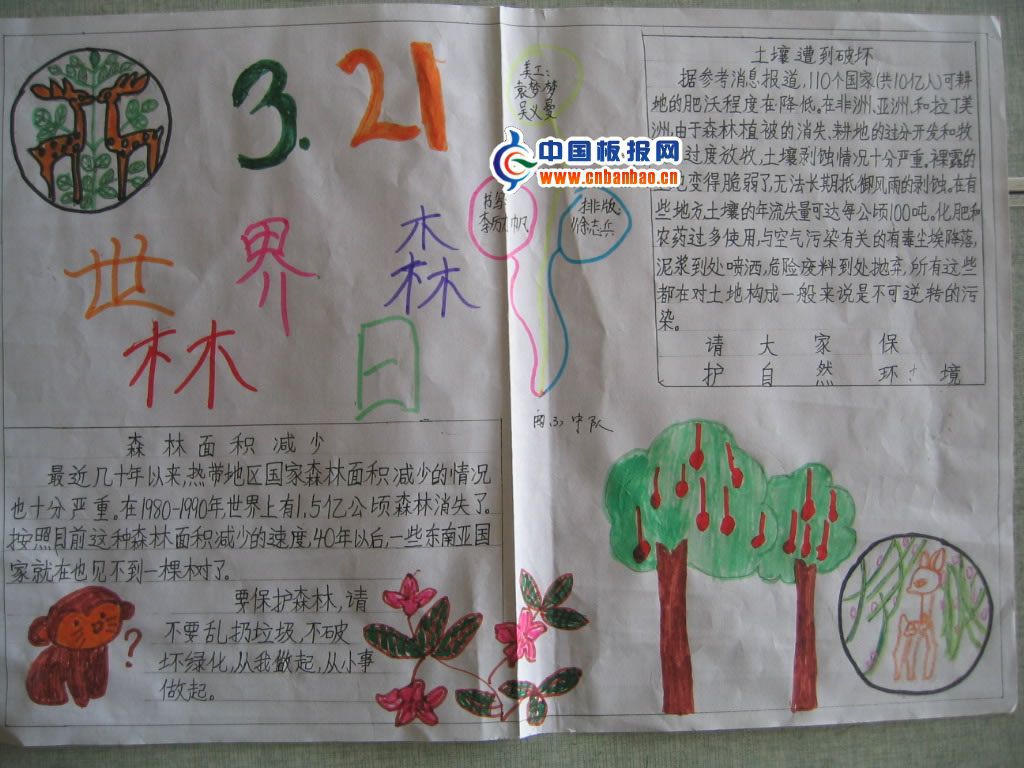 3.21
世界森
林日
美工:
中国板报网
www.cnbanbao.cn
排版:
徐志兵
中队
土壤遭到破坏
据参考消息报道,110个国家(共10亿人)可耕
地的肥沃程度在降低。在非洲、亚洲、和拉丁美
洲,由于森林植被的消失、耕地的过分开发和牧
过度放牧,土壤剥蚀情况十分严重。裸露的
变得脆弱了,无法长期抵御风雨的剥蚀。在有
些地方土壤的年流失量可达每公顷100吨。化肥和
农药过多使用,与空气污染有关的有毒尘埃降落,
泥浆到处喷洒,危险废料到处抛弃,所有这些
都在对土地构成一般来说是不可逆转的污
染。
请大家保
护自然环境
森林面积减少
最近几十年以来,热带地区国家森林面积减少的情况
也十分严重。在1980-1990年世界上有1.5亿公顷森林消失了。
按照目前这种森林面积减少的速度,40年以后,一些东南亚国
家就在也见不到一棵树了。
要保护森林,请
不要乱扔垃圾,不破
坏绿化,从我做起,从小事
做起。
?